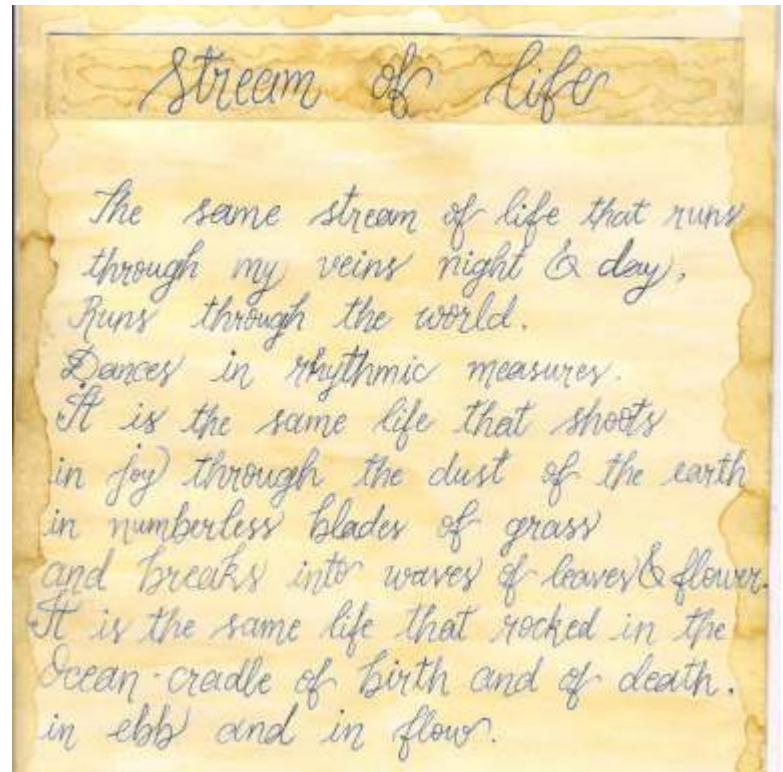 Stream of life
The same stream of life that runs
through my veins night & day,
Runs through the world.
Dances in rhythmic measures.
It is the same life that shoots
in joy through the dust of the earth
in numberless blades of grass
and breaks into waves of leaves & flower.
It is the same life that rocked in the
Ocean-cradle of birth and of death.
in ebb and in flow.